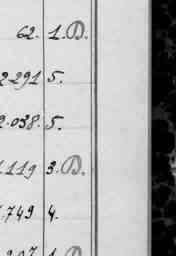 62. 1. D.
2291 5.
2.038. 5.
.119 3. D.
.749 4.